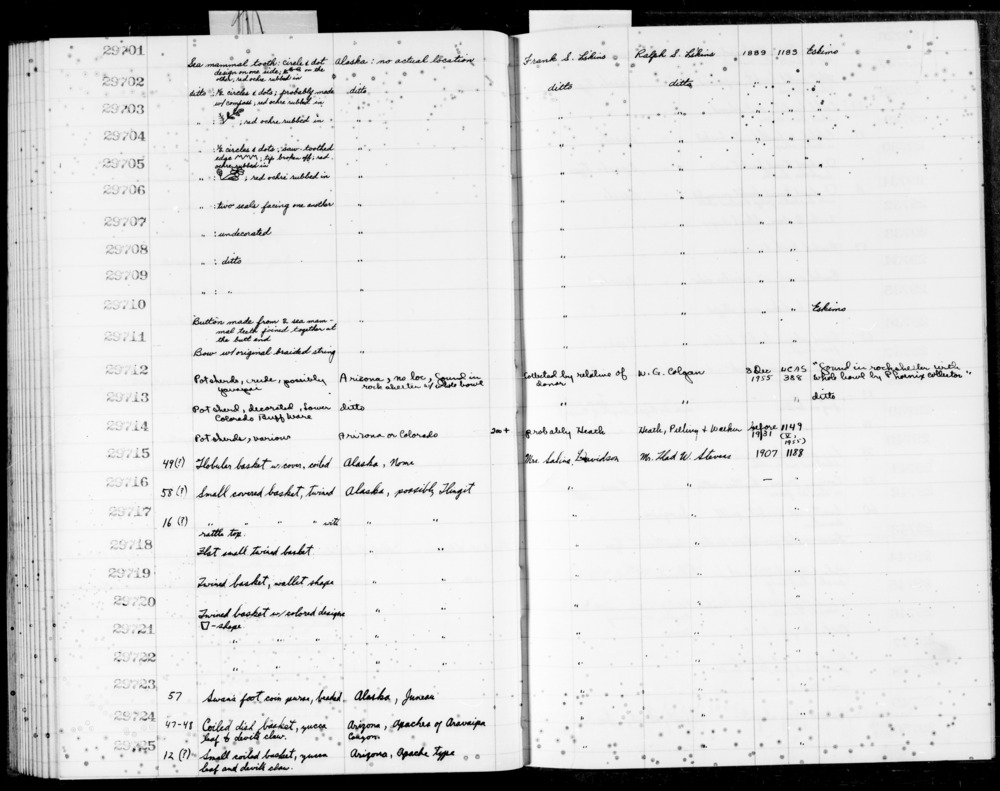 29701
Sea mammal tooth: circle & dot design on one side; on the other, red ochre rubbed in | Alaska: no actual location | Frank S. | Ralph S. | 1889 | 1185 | Eskimo
29702
ditto : ½ circles & dots; probably made w/ compass; red ochre rubbed in | ditto | ditto | ditto | " | " | "
29703
" : ; red ochre rubbed in | " | " | " | " | " | "
29704
" : ½ circles & dots; saw toothed edge; tip broken off; red ochre rubbed in | " | " | " | " | " | "
29705
" : ; red ochre rubbed in | " | " | " | " | " | "
29706
" : two seals facing one another | " | " | " | " | "
29707
" : undecorated | " | " | " | " | "
29708
" : ditto | " | " | " | " | "
29709
" : " | " | " | " | " | "
29710
Button made from 2 sea mam-
mal teeth joined together at
the butt end | " | " | " | " | " | Eskimo
29711
Bow w/ original braided string | " | " | " | " | "
29712
Potsherds, crude, possibly
Yavapai | Arizona, no loc, found in
rock shelter w/ whole bowl | Collected by relative of
donor | W. G. Colgan | 8 Dec
1955 | UCAS
388 | "found in rockshelter with
whole bowl by Phoenix collector"
29713
Potsherd, decorated, Lower
Colorado Buff Ware | ditto | " | " | " | ditto
29714
Potsherds, various | Arizona or Colorado | 200+ | probably Heath | Heath, & | before
1931 | 1149
(V,
1955)
29715
49(?) | Globular basket w/ cover, coiled | Alaska, Nome | Mrs. Davidson | Mr. W. Stevens | 1907 | 1188
29716
58 (?) | Small covered basket, twined | Alaska, possibly Tlingit | " | " | — | "
29717
16 (?) | " " " " with
rattle top. | " "
29718
Flat small twined basket | " "
29719
Twined basket, wallet shape | " "
29720
Twined basket w/ colored designs
-shape | " "
29721
" " " " | " "
29722
" " " | " "
29723
57 | Swan's foot coin purse, beaded. | Alaska, Juneau
29724
47-48 | Coiled dish basket, yucca
leaf & devil's claw. | Arizona, Apaches of Aravaipa
Canyon
29725
12 (?) | Small coiled basket, yucca
leaf and devil's claw. | Arizona, Apache type